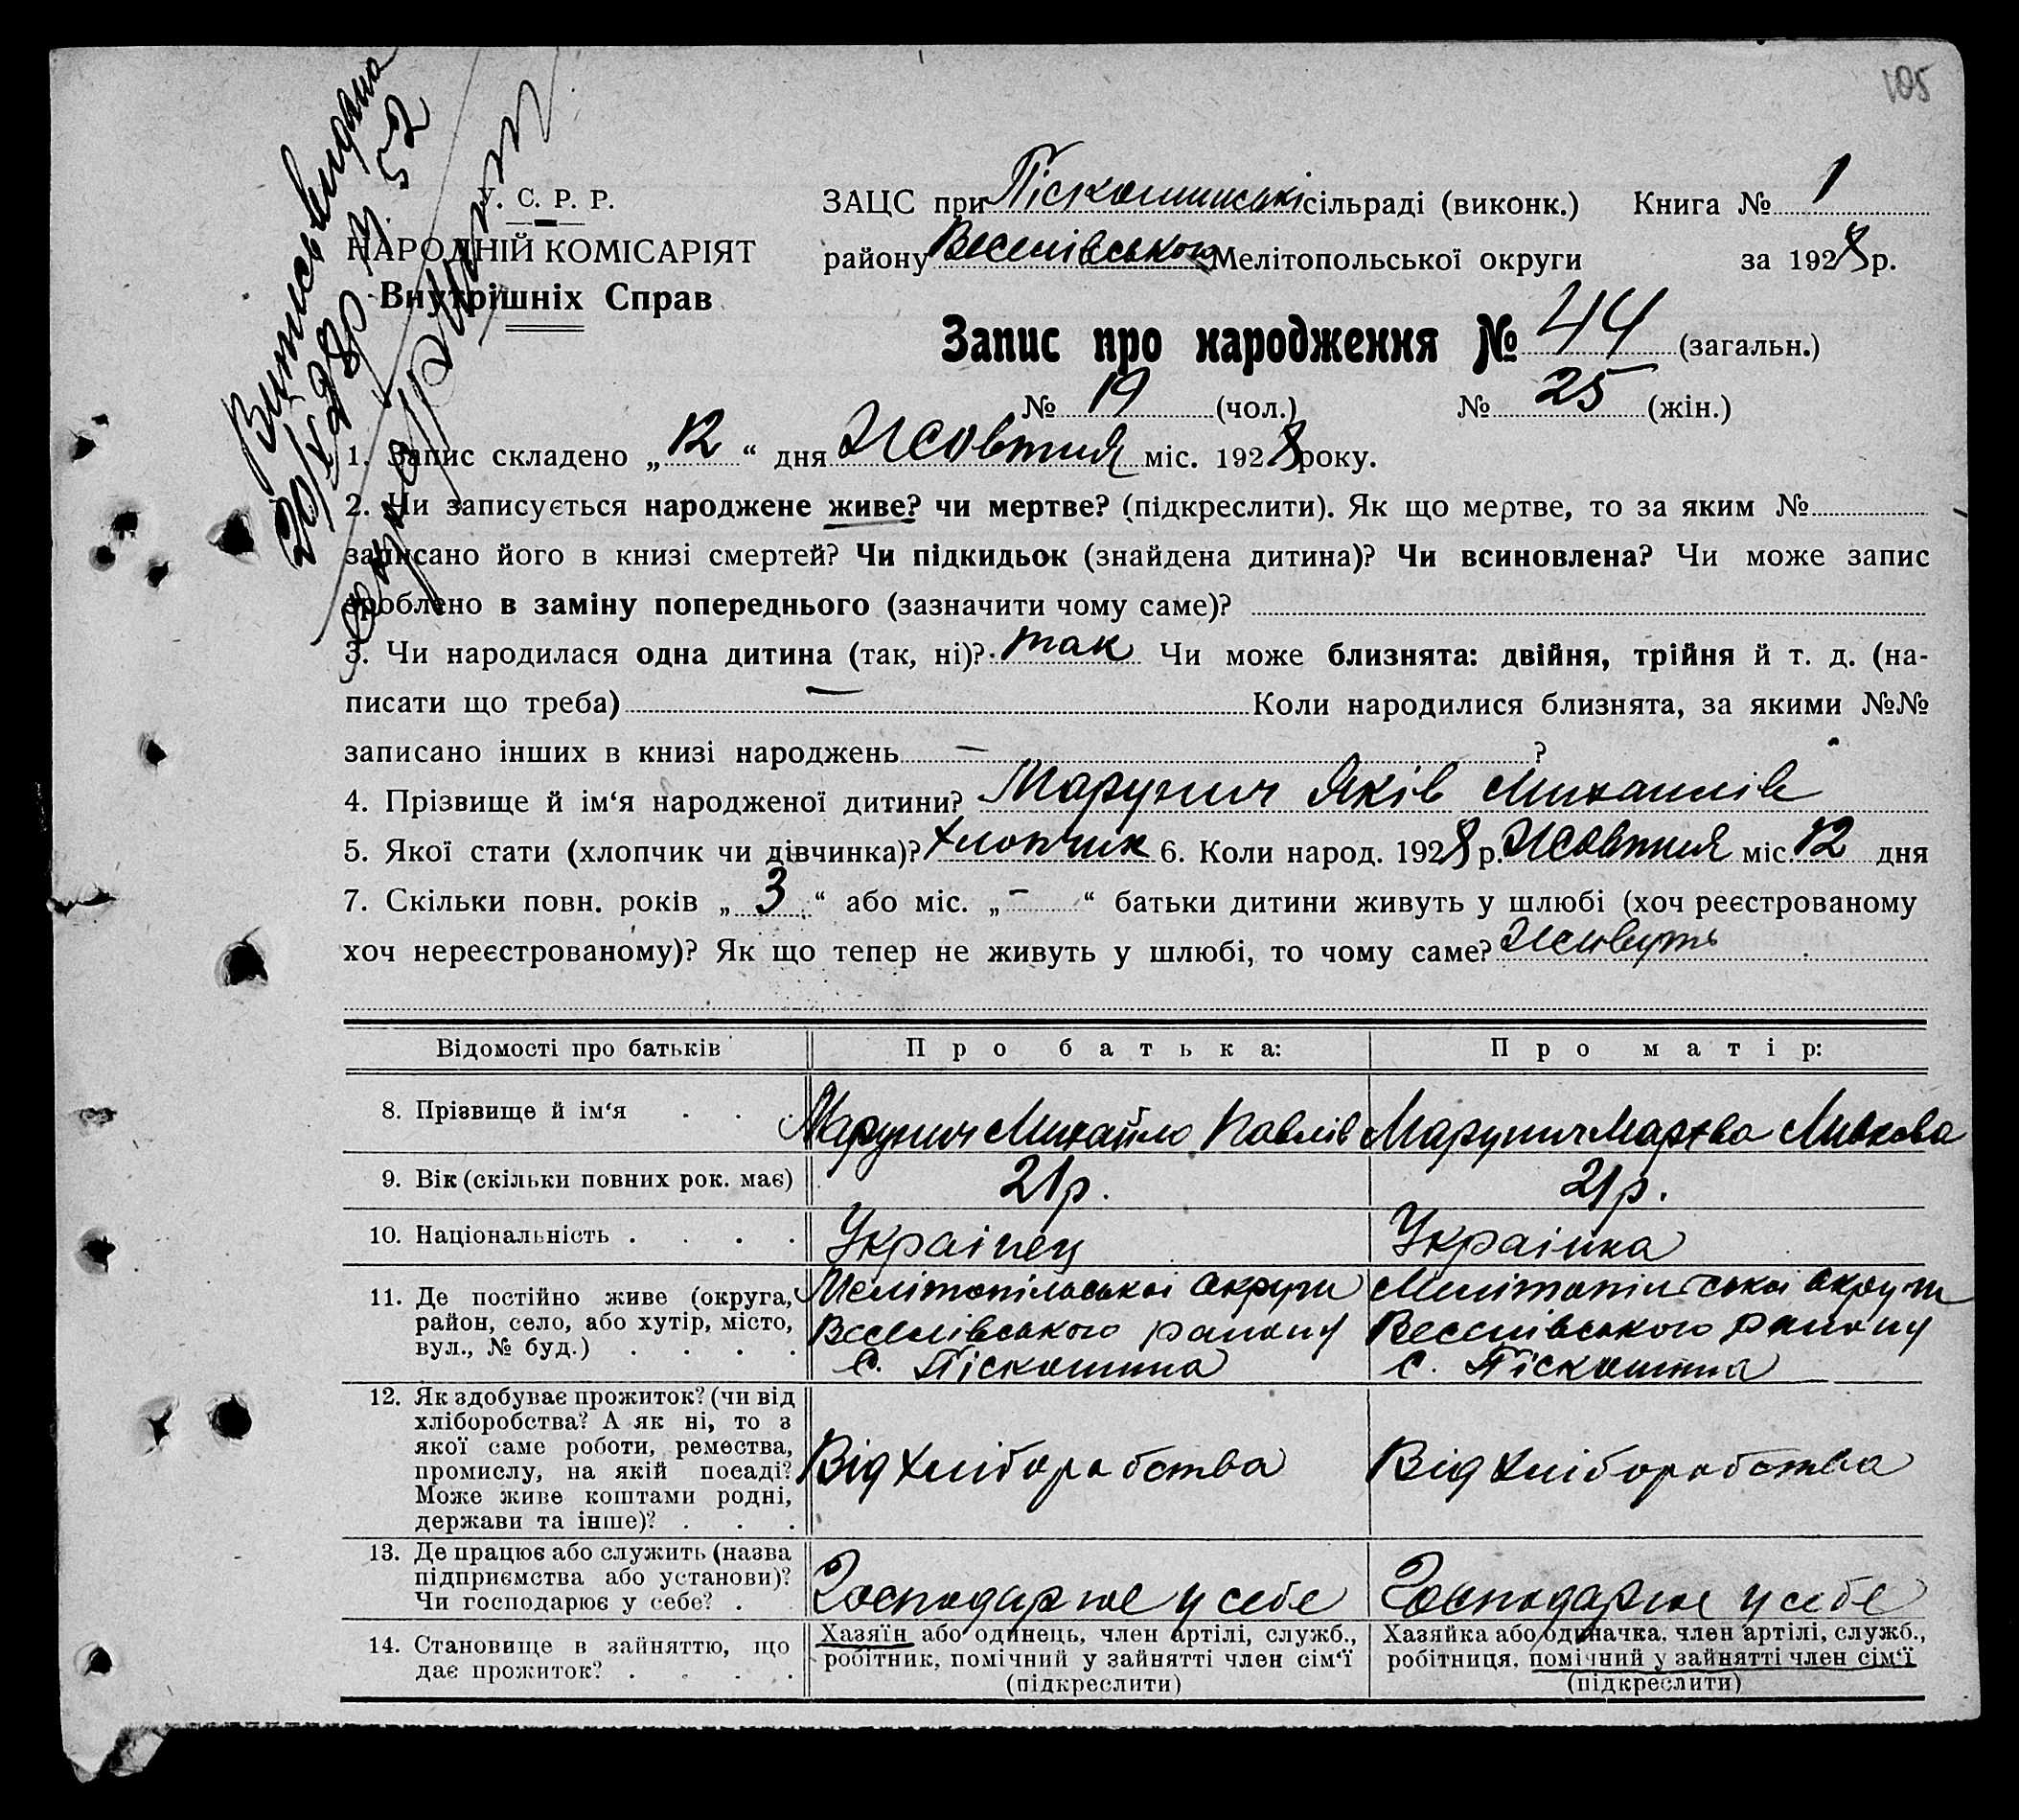 105
Випись видана
20/X 28р № 52
У. С. Р. Р.
НАРОДНІЙ КОМІСАРІЯТ
Внутрішніх Справ
ЗАЦС при Піскошинські сільраді (виконк.) Книга № 1
району Веселівського Мелітопольської округи за 1928 р.
Запис про народження № 44 (загальн.)
№ 19 (чол.) № 25 (жін.)
1. Запис складено „12“ дня Жовтня міс. 1928 року.
2. Чи записується народжене живе? чи мертве? (підкреслити). Як що мертве, то за яким №
записано його в книзі смертей? Чи підкидьок (знайдена дитина)? Чи всиновлена? Чи може запис
зроблено в заміну попереднього (зазначити чому саме)?
3. Чи народилася одна дитина (так, ні)? так Чи може близнята: двійня, трійня й т. д. (на-
писати що треба) — Коли народилися близнята, за якими №№
записано інших в книзі народжень — ?
4. Прізвище й ім‘я народженої дитини? Марунич Яків Михайлів
5. Якої стати (хлопчик чи дівчинка)? хлопчик 6. Коли народ. 1928 р. Жовтня міс. 12 дня
7. Скільки повн. років „3“ або міс. „-“ батьки дитини живуть у шлюбі (хоч реєстрованому
хоч нереєстрованому)? Як що тепер не живуть у шлюбі, то чому саме? Живуть
Відомості про батьків Про батька: Про матір:
8. Прізвище й ім‘я . . . Марунич Михайло Павлів Марунич Мархва
9. Вік (скільки повних рок. має) 21 р. 21 р.
10. Національність . . . . Украінец Украінка
11. Де постійно живе (округа, Мелітопільськоі округи Мелітопільськоі округи
район, село, або хутір, місто, Веселівського району Веселівського району
вул., № буд.) . . . . с. Піскошина с. Піскошина
12. Як здобуває прожиток? (чи від
хліборобства? А як ні, то з
якої саме роботи, ремества,
промислу, на якій посаді? Від хліборобства Від хліборобства
Може живе коштами родні,
держави та інше)? . . .
13. Де працює або служить (назва
підприємства або установи)?
Чи господарює у себе? . Господарює у себе Господарює у себе
14. Становище в зайняттю, що Хазяїн або одинець, член артілі, служб., Хазяйка або одиначка, член артілі, служб.,
дає прожиток? . . . . робітник, помічний у зайнятті член сім‘ї робітниця, помічний у зайнятті член сім‘ї
(підкреслити) (підкреслити)